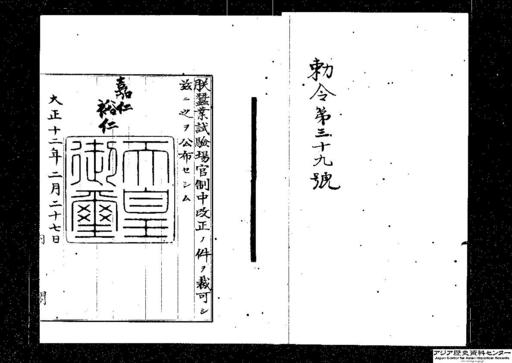 勅令第三十九號
朕蠶業試驗場官制中改正ノ件ヲ裁可シ
玆ニ之ヲ公布セシム
嘉仁
裕仁
天皇
御璽
大正十二年二月二十七日
アジア歴史資料センター
Japan Center for Asian Historical Records